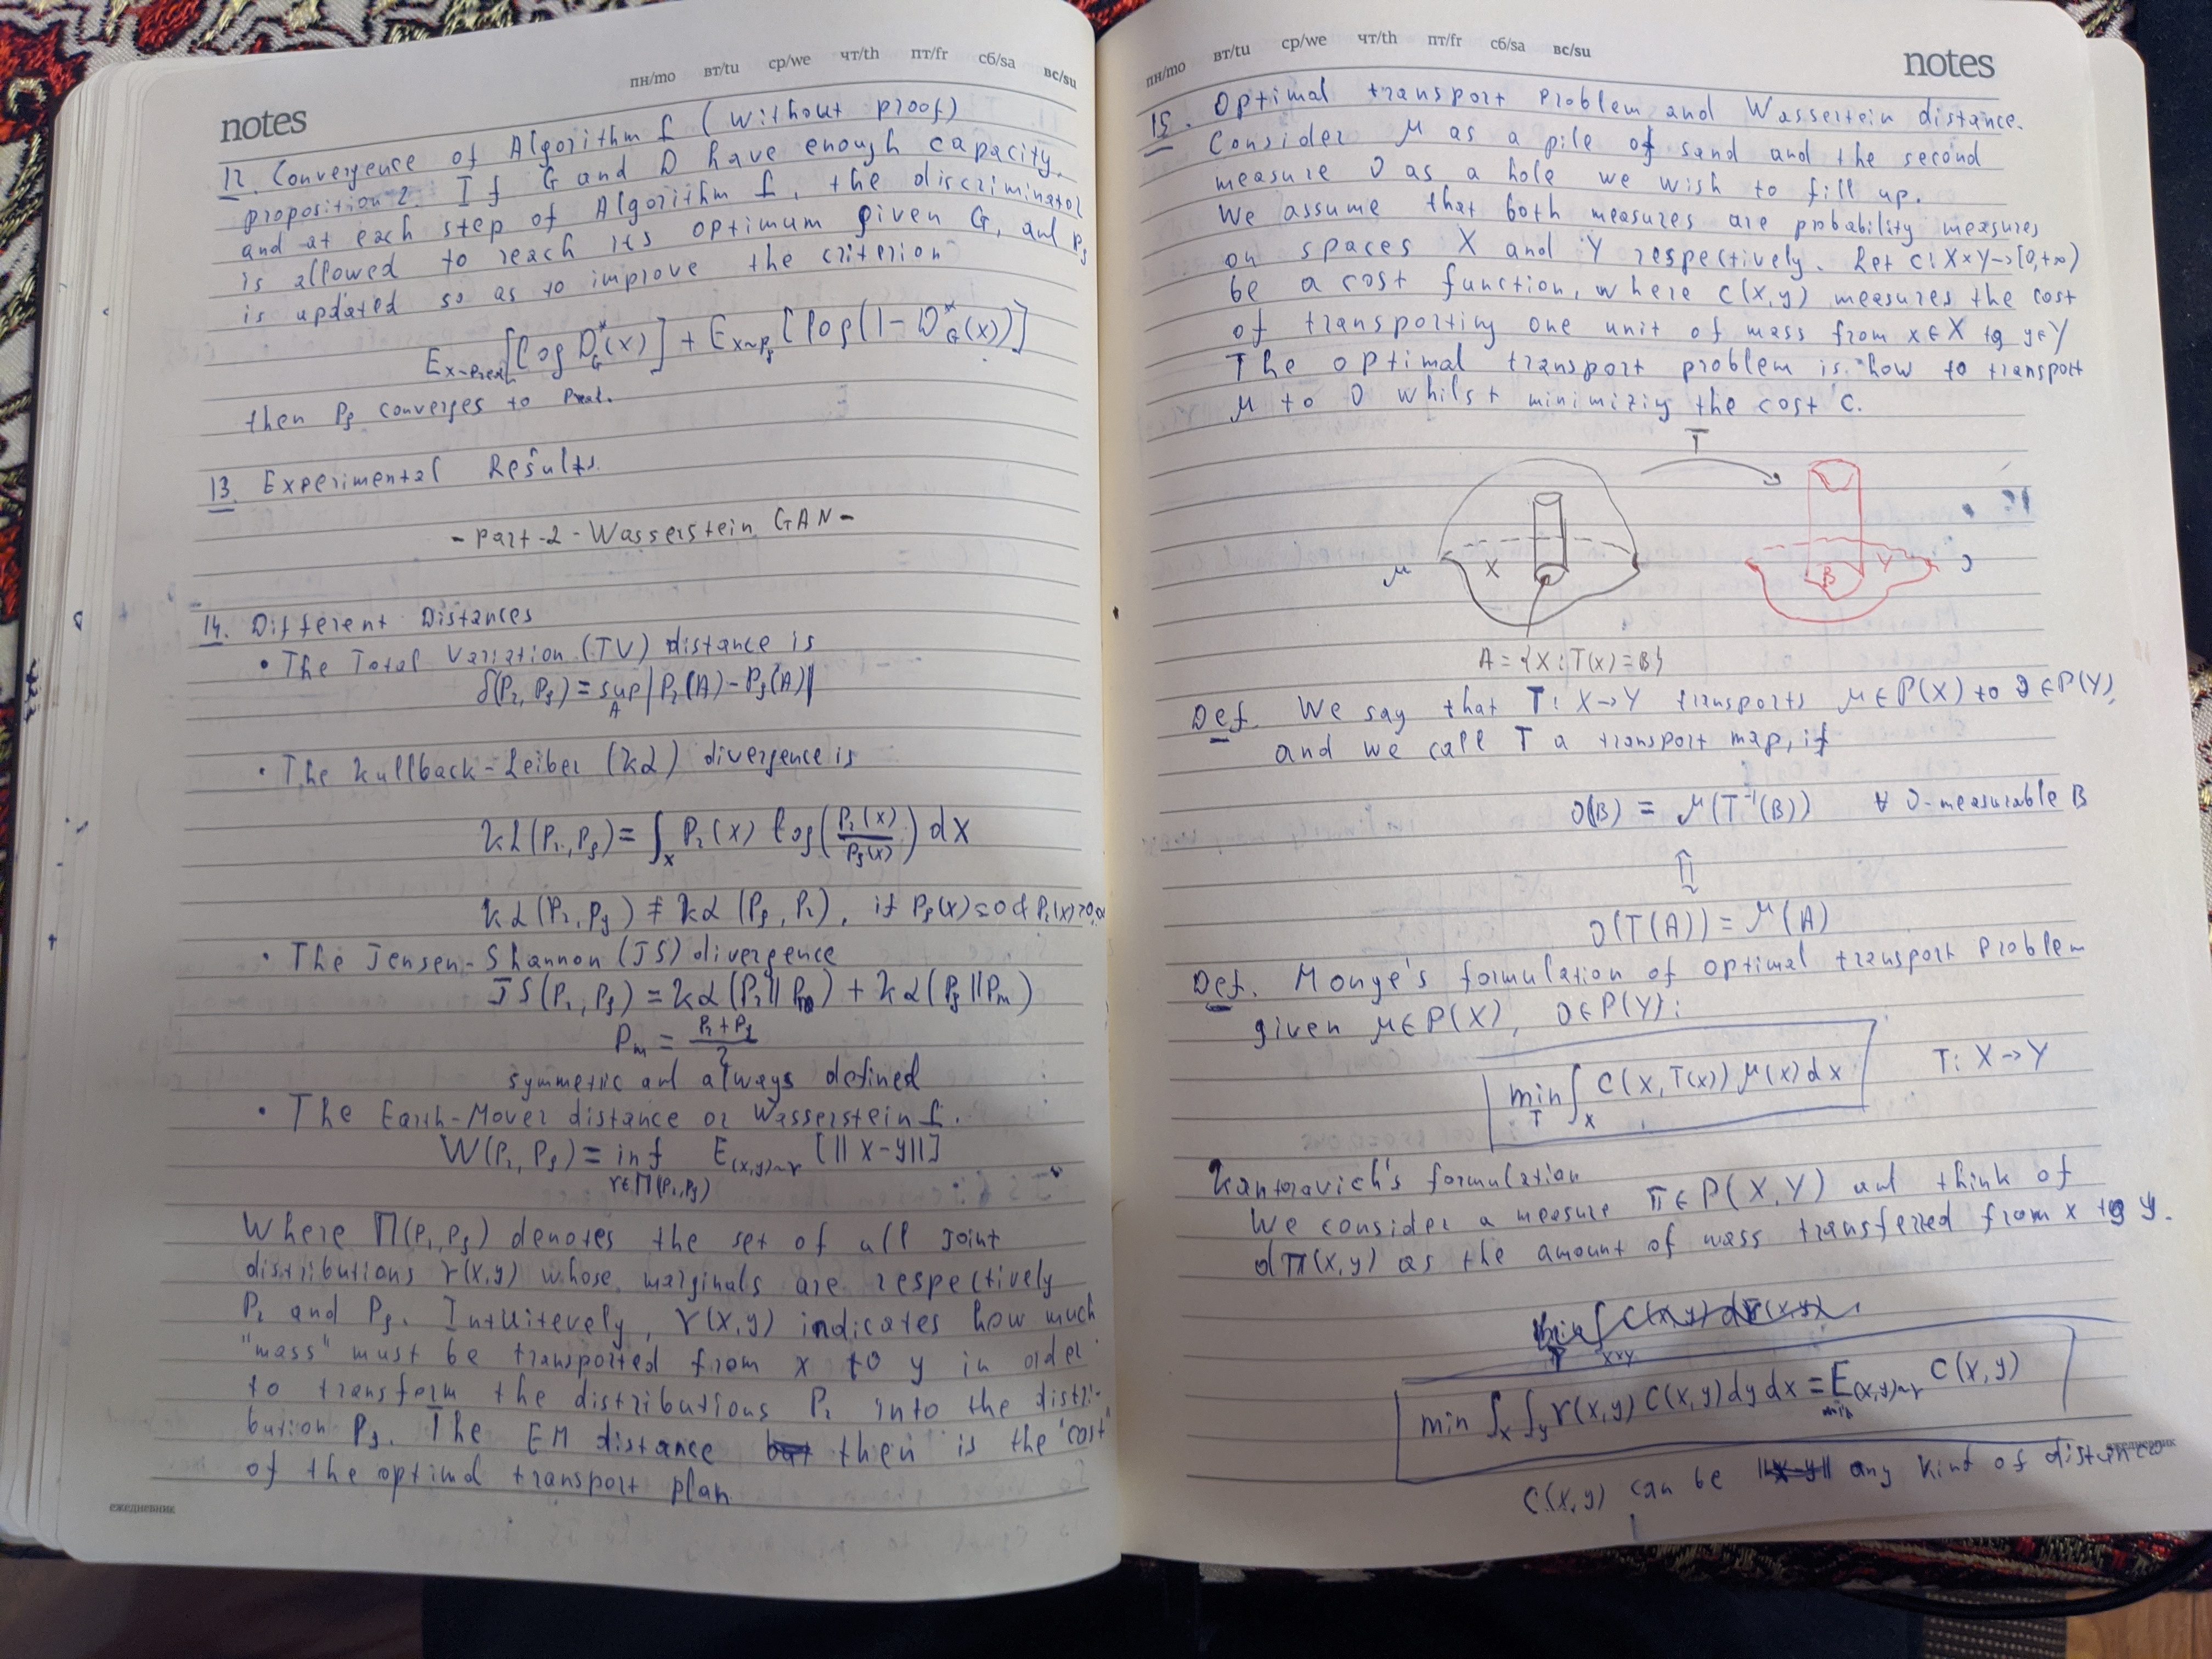 notes
пн/mo вт/tu ср/we чт/th пт/fr сб/sa вс/su
12. Convergence of Algorithm 1 (without proof)
proposition 2. If G and D have enough capacity,
and at each step of Algorithm 1, the discriminator
is allowed to reach its optimum given G, and Pg
is updated so as to improve the criterion
E_x~Preal[log D*_G(x)] + E_x~Pg[log(1 - D*_G(x))]
then Pg converges to Preal.
13. Experimental Results.
- part - 2 - Wasserstein GAN -
14. Different Distances
• The Total Variation (TV) distance is
δ(Pr, Pg) = sup_A |Pr(A) - Pg(A)|
• The Kullback-Leiber (KL) divergence is
KL(Pr, Pg) = ∫_x Pr(x) log(Pr(x)/Pg(x)) dx
KL(Pr, Pg) ≠ KL(Pg, Pr), if Pg(x)=0 & Pr(x)>0, ∞
• The Jensen-Shannon (JS) divergence
JS(Pr, Pg) = KL(Pr || Pm) + KL(Pg || Pm)
Pm = (Pr + Pg)/2
symmetric and always defined
• The Earth-Mover distance or Wasserstein 1.
W(Pr, Pg) = inf_γ∈Π(Pr,Pg) E_(x,y)~γ [||x-y||]
Where Π(Pr, Pg) denotes the set of all joint
distributions γ(x,y) whose marginals are respectively
Pr and Pg. Intuitevely, γ(x,y) indicates how much
"mass" must be transported from x to y in order
to transform the distributions Pr into the distri-
bution Pg. The EM distance then is the "cost"
of the optimal transport plan.
ежедневник
notes
пн/mo вт/tu ср/we чт/th пт/fr сб/sa вс/su
15. Optimal transport problem and Wassertein distance.
Consider μ as a pile of sand and the second
measure ν as a hole we wish to fill up.
We assume that both measures are probability measures
on spaces X and Y respectively. Let c: X×Y→[0,+∞)
be a cost function, where c(x,y) measures the cost
of transporting one unit of mass from x∈X to y∈Y
The optimal transport problem is how to transport
μ to ν whilst minimiziy the cost c.
T
μ X B Y ν
A = {X: T(x) = B}
Def. We say that T: X→Y transports μ∈P(X) to ν∈P(Y),
and we call T a transport map, if
ν(B) = μ(T⁻¹(B)) ∀ ν-measurable B
⇕
ν(T(A)) = μ(A)
Def. Monge's formulation of optimal transport problem
given μ∈P(X), ν∈P(Y):
min_T ∫_X C(x, T(x)) μ(x) dx T: X→Y
Kantoravich's formulation
We consider a measure π∈P(X,Y) and think of
dπ(x,y) as the amount of mass transferred from x to y.
min ∫_x ∫_y γ(x,y) C(x,y) dy dx = E_(x,y)~γ C(x,y)
min
C(x,y) can be any kind of distance
ежедневник